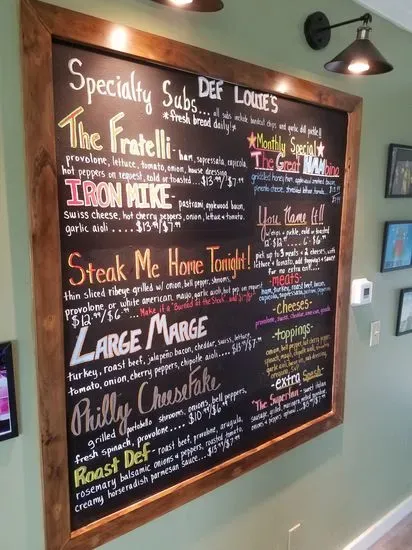 DEF LOUIE'S
Specialty Subs... all subs include handcut chips and garlic dill pickle!!
*fresh bread daily!*
The Fratelli - ham, sopressata, capicola,
provolone, lettuce, tomato, onion, house dressing,
hot peppers on request, cold or toasted... $13.99/$7.99
IRON MIKE - pastrami, applewood bacon,
swiss cheese, hot cherry peppers, onion, lettuce + tomato,
garlic aioli ..... $13.99/$7.99
Steak Me Home Tonight!
thin sliced ribeye grilled w/ onion, bell pepper, shrooms,
provolone or white american, mayo, garlic aioli, hot pep on request
$12.99/$6.99 ...Make it a "Burned at the Steak" add
LARGE MARGE
turkey, roast beef, jalapeño bacon, cheddar, swiss, lettuce,
tomato, onion, cherry peppers, chipotle aioli.... $13.99/$7.99
Philly CheeseFake
grilled portobello shrooms, onions, bell peppers,
fresh spinach, provolone.... $10.99/$6.99
Roast Def - roast beef, provolone, arugula,
rosemary balsamic onions + peppers, roasted tomato,
creamy horseradish parmesan sauce... $13.99/$7.99
Monthly Special
The Great HAMbino
griddled honey ham, applewood smoked bacon,
pimento cheese, shredded lettuce, tomato
You Name It!!
w/ chips + pickle, cold or toasted
12" $12 6" $6.99
pick up to 3 meats + 2 cheeses, with
lettuce + tomato, add toppings + sauce
for no extra cost...
-meats-
ham, turkey, roast beef, bacon,
capicola, sopressata, pastrami
-cheeses-
provolone, swiss, cheddar, american
-toppings-
onion, bell pepper, hot cherry pepper,
spinach, mayo, chipotle aioli,
garlic aioli, house dressing,
-extra
"The Superfan" - sweet italian
sausage, grilled, marinara, melted provolone
onions + peppers optional ... $13.99/$7.99